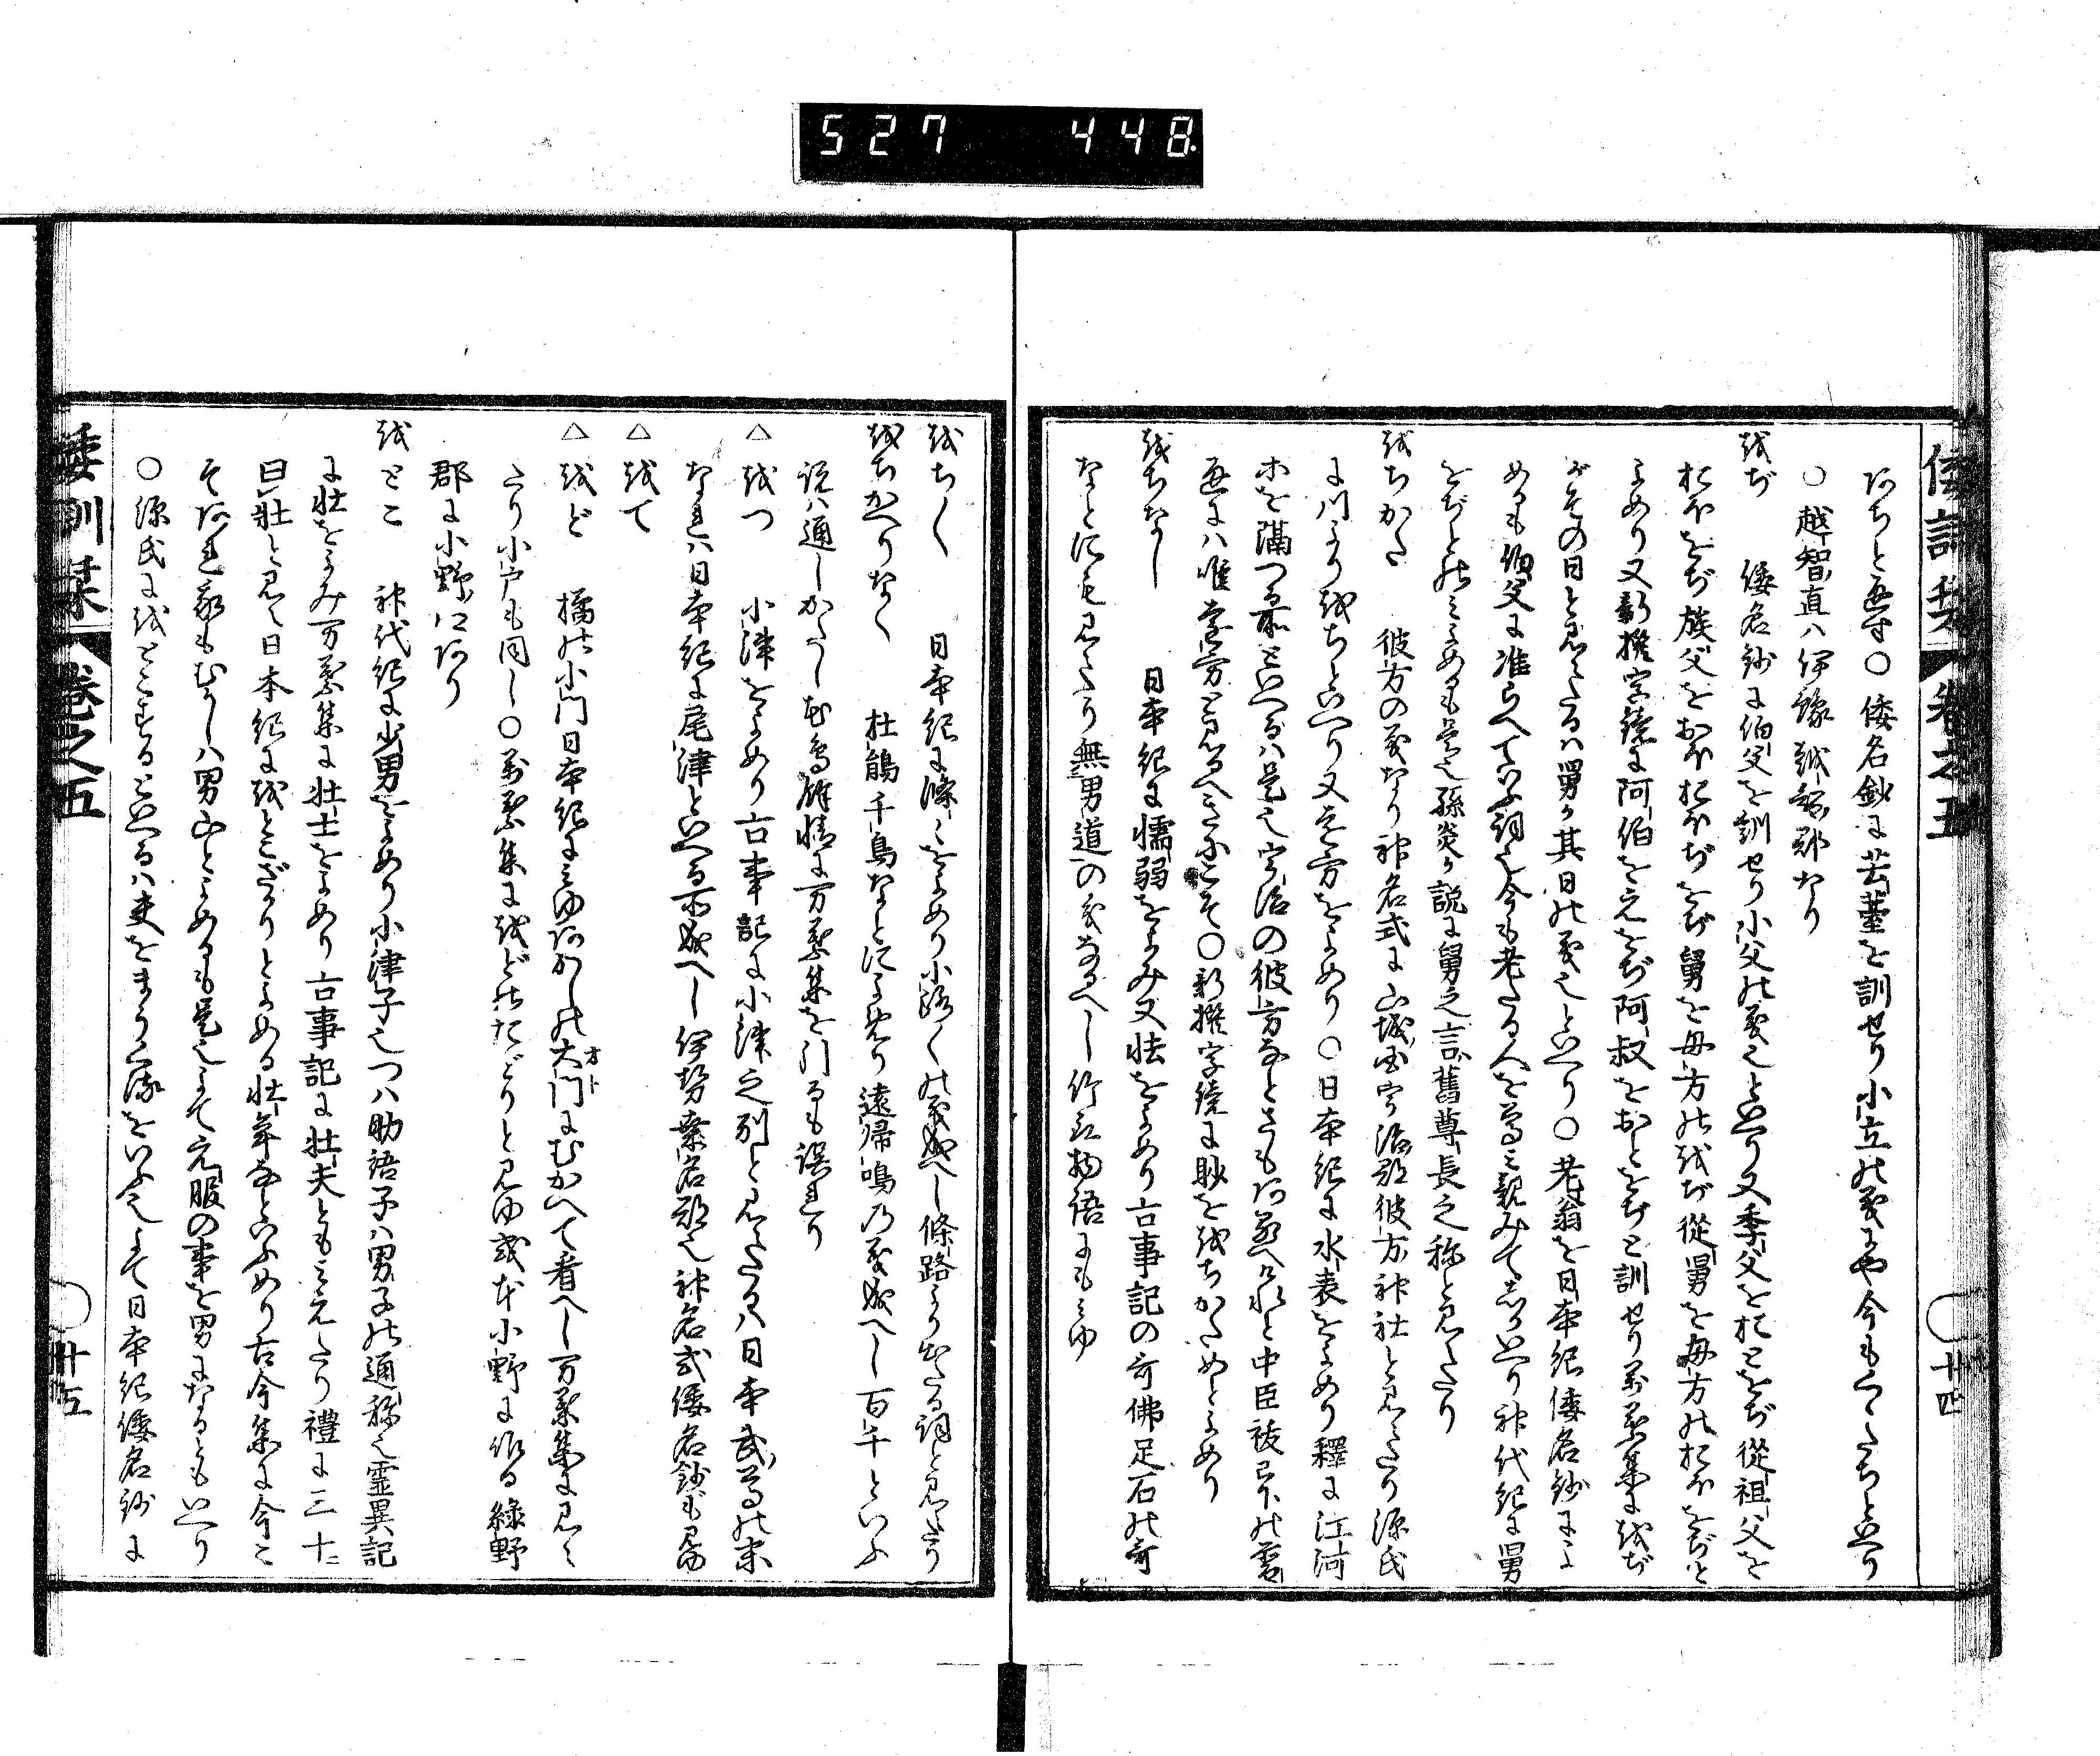 527 448
倭訓栞 卷之五 廿四
をちと通す〇倭名鈔に芸薹を訓せり小立の義にや今もくゝたちといへり
〇越智直ハ伊豫越智郡なり
をぢ 倭名鈔に伯父を訓せり小父の義也といへり又季父をおとをぢ從祖父を
おほをぢ族父をおほおほぢをぢ舅を母方のをぢ從舅を母方のおほをぢと
よめり又新撰字鏡に阿伯をえをぢ阿叔をおとをぢと訓せり万葉集にをぢ
がその日と見えたるハ舅か其日の義也といへり〇老翁を日本紀倭名鈔によ
めるも伯父に准らへていふ詞也今も老たる人を尊み親みてしかいへり神代紀に舅
をぢとのみよめるも是也孫炎か説に舅之言舊尊長之称と見えたり
をちかた 彼方の義なり神名式に山城国宇治郡彼方神社と見えたり源氏
に川よりをちといへり又遠方をよめり〇日本紀に水表をよめり釋に江河
等を隔つる所といへるハ是也宇治の彼方なとさもあるへけれと中臣祓
通にハ唯遠方と見るへきにこそ〇新撰字鏡に眇ををちかためとよめり
をちなし 日本紀に懦弱をよみ又怯をよめり古事記の哥佛足石の哥
なとにも見えたり無男道の義なるへし竹取物語にもみゆ
をちく 日本紀に條々をよめり小路くの義成へし條路より出たる詞と見えたり
をちかへりなく 杜鵑千鳥なとによめり遠帰鳴の義成へし百千といふ
説ハ通しかたし花鳥餘情に万葉集を引るも誤れり
△をつ 小津をよめり古事記に小津之別と見えたるハ日本武尊の末
なれハ日本紀に尾津といへる所成へし伊勢桑名郡也神名式倭名鈔にも見ゆ
△をて
△をど 橘の小門日本紀にみゆあかしの大門にむかへて看へし万葉集に見え
たり小戸も同し〇万葉集にをどのたどりと見ゆ或本小野に作る緑野
郡に小野ハあり
をとこ 神代紀に少男をよめり小津子也つハ助語子ハ男子の通称也霊異記
に壮をよみ万葉集に壮士をよめり古事記に壮夫ともみえたり禮に三十
曰壮と見え日本紀にをとこざかりとよめる壮年なといふめり古今集に今こ
そあれ我もむかしハ男山とよめるも是也よて元服の事を男になるともいへり
〇源氏にをとこするといへるハ夫をまうくる事をいふ也よて日本紀倭名鈔に
倭訓栞 卷之五 廿五